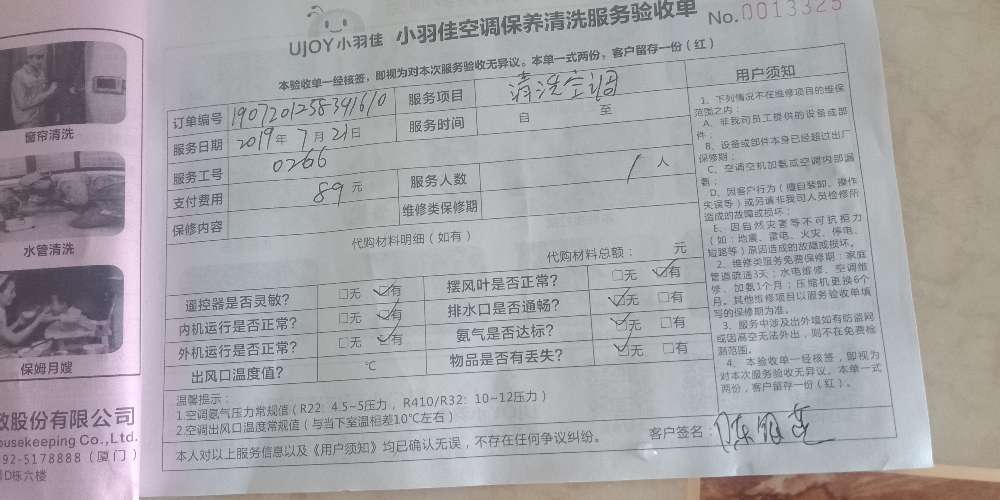 UJOY小羽佳 小羽佳空调保养清洗服务验收单 No.0013325
本验收单一经核签，即视为对本次服务验收无异议。本单一式两份，客户留存一份（红）
订单编号 1907201258341610 服务项目 清洗空调
服务日期 2019年7月21日 服务时间 自 至
服务工号 0266
支付费用 89元 服务人数 1人
保修内容 维修类保修期
代购材料明细（如有）
代购材料总额： 元
遥控器是否灵敏？ □无 ☑有 摆风叶是否正常？ □无 ☑有
内机运行是否正常？ □无 ☑有 排水口是否通畅？ ☑无 □有
外机运行是否正常？ □无 ☑有 氨气是否达标？ ☑无 □有
出风口温度值？ ℃ 物品是否有丢失？ ☑无 □有
温馨提示：
1空调氨气压力常规值（R22：4.5~5压力，R410/R32：10~12压力）
2空调出风口温度常规值（与当下室温相差10℃左右）
本人对以上服务信息以及《用户须知》均已确认无误，不存在任何争议纠纷。 客户签名：
用户须知
1、下列情况不在维修项目的维保
范围之内：
A、非我司员工提供的设备或部
件；
B、设备或部件本身已经超过出厂
保修期；
C、空调空机加氨或空调内部漏
氨；
D、因客户行为（擅自装卸、操作
失误等）或另请非我司人员检修所
造成的故障或损坏；
E、因自然灾害等不可抗拒力
（如：地震、雷电、火灾、停电、
短路等）原因造成的故障或损坏。
2、维修类服务免费保修期：家庭
管道疏通3天；水电维修、空调维
修、加氨1个月；压缩机更换6个
月。其他维修项目以服务验收单填
写的保修期为准。
3、服务中涉及出外墙如有防盗网
或因高空无法外出，则不在免费检
测范围。
4、本验收单一经核签，即视为
对本次服务验收无异议。本单一式
两份，客户留存一份（红）。
窗帘清洗
水管清洗
保姆月嫂
政股份有限公司
ousekeeping Co.,Ltd.
92-5178888（厦门）
D栋六楼